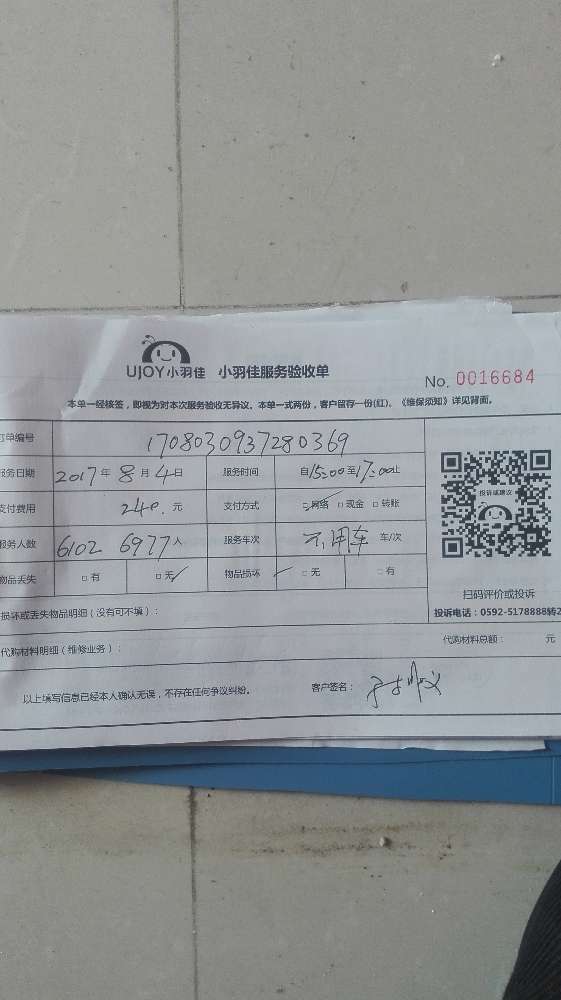 UJOY小羽佳 小羽佳服务验收单
No. 0016684
本单一经核签，即视为对本次服务验收无异议。本单一式两份，客户留存一份(红)。《维保须知》详见背面。
订单编号 1708030937280369
服务日期 2017年8月4日 服务时间 自15:00至17:00止
支付费用 240.元 支付方式 网络 □现金 □转账
服务人数 6102 6977人 服务车次 不用车 车/次
物品丢失 □有 □无 物品损坏 □无 □有
投诉或建议
扫码评价或投诉
投诉电话：0592-5178888转2
损坏或丢失物品明细（没有可不填）：
代购材料明细（维修业务）： 代购材料总额： 元
以上填写信息已经本人确认无误，不存在任何争议纠纷。 客户签名：